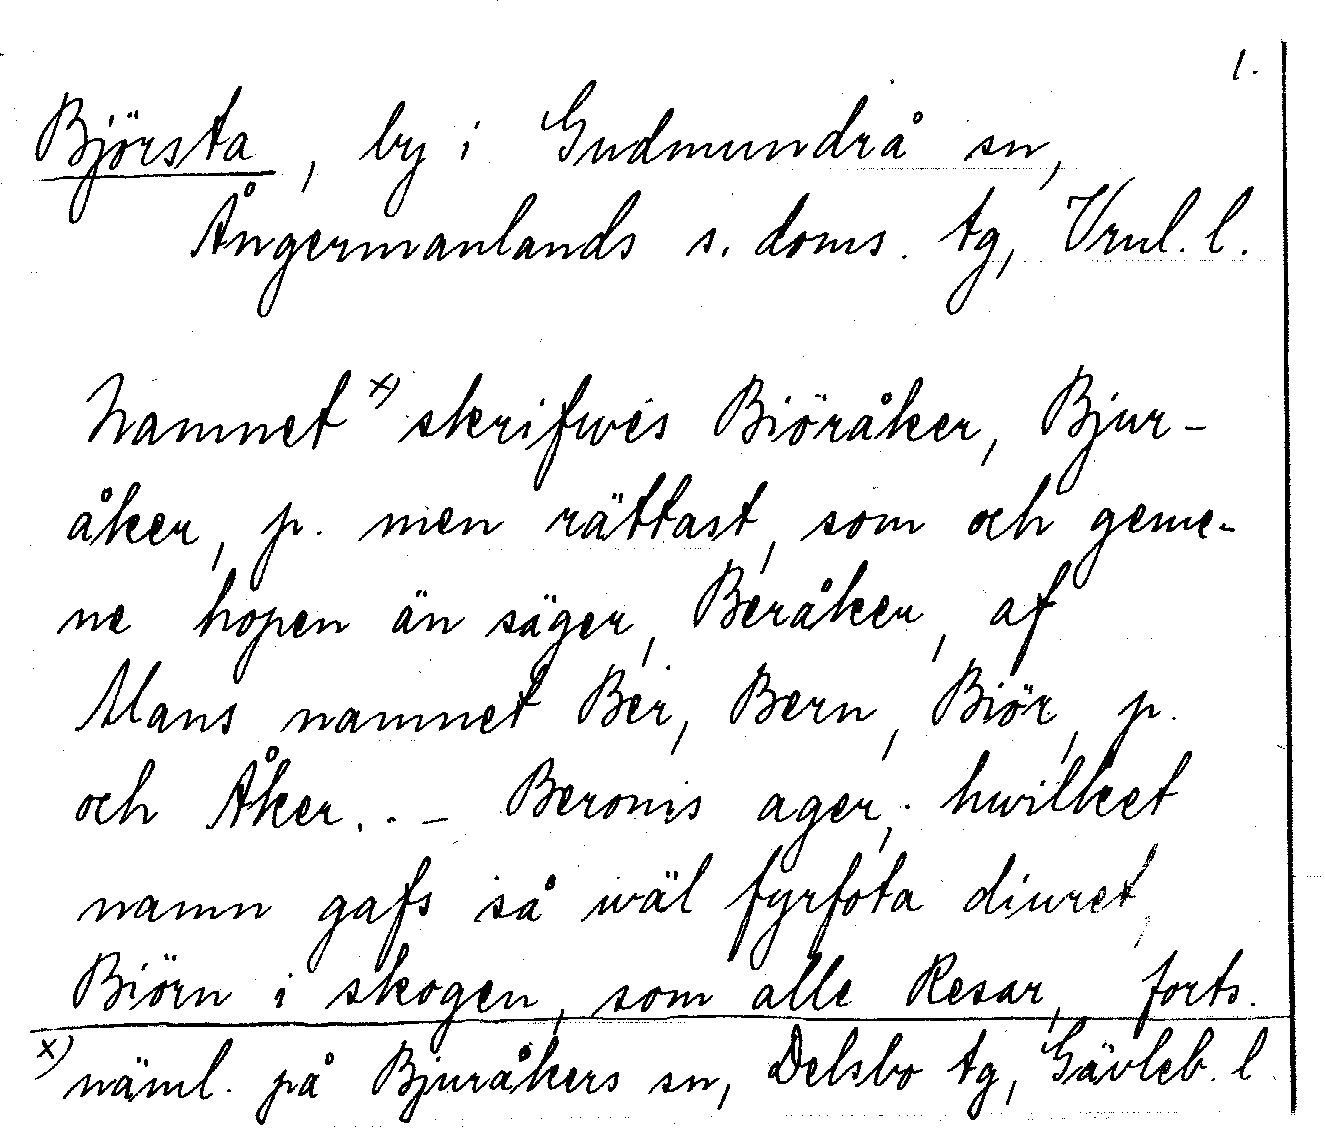 1.
Björsta, by i Gudmundrå sn,
Ångermanlands s. doms. tg, Vrnl. l.
Namnet x) skrifwes Biöråker, Bjur-
åker, p. men rättast, som och geme-
ne hopen än säger, Beråker, af
Mans namnet Ber, Bern, Biör, p.
och Åker. . – Beronis ager, . hwilket
namn gafs så wäl fyrfota diuret,
Biörn i skogen, som alle Resar, forts.
x) näml. på Bjuråkers sn, Delsbo tg, Gävleb. l